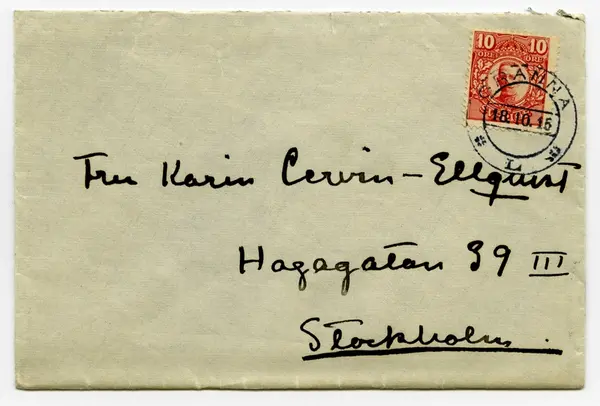 10 10
ÖRE ÖRE
GRÄNNA
18.10.15
L
Fru Karin Cervin-Ellquist
Hagagatan 39 III
Stockholm.